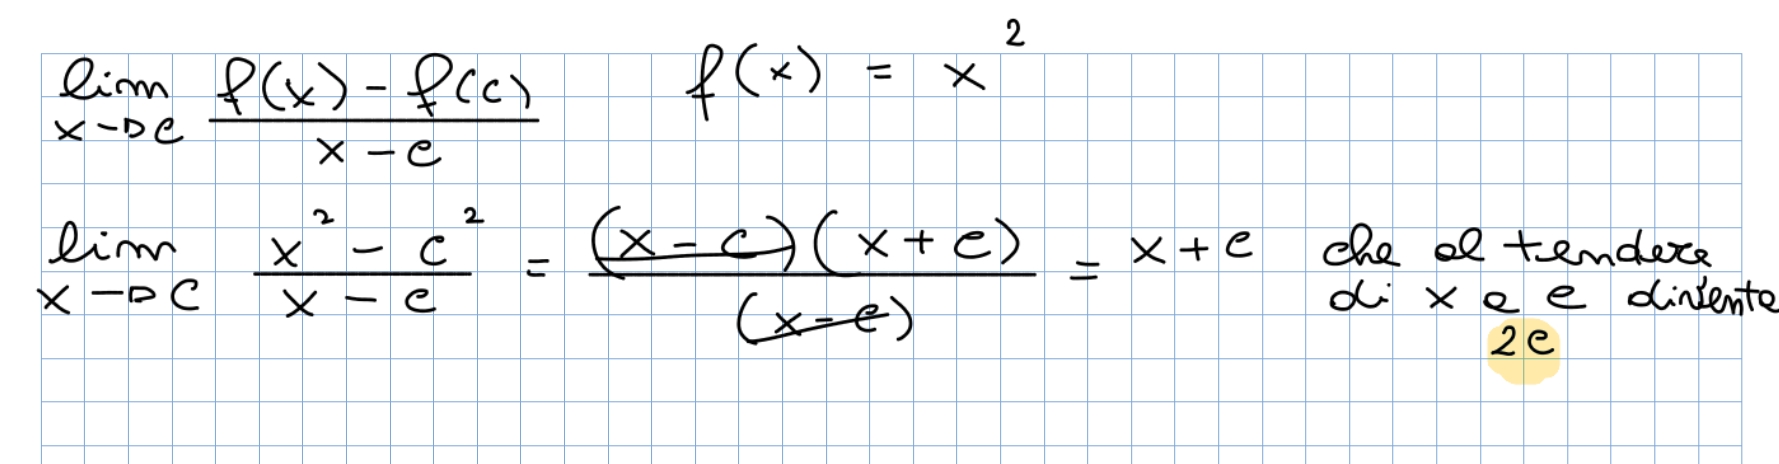 lim x→c (f(x) - f(c)) / (x - c)    f(x) = x²
lim x→c (x² - c²) / (x - c) = (x - c)(x + c) / (x - c) = x + c che al tendere
di x a c diventa
2c